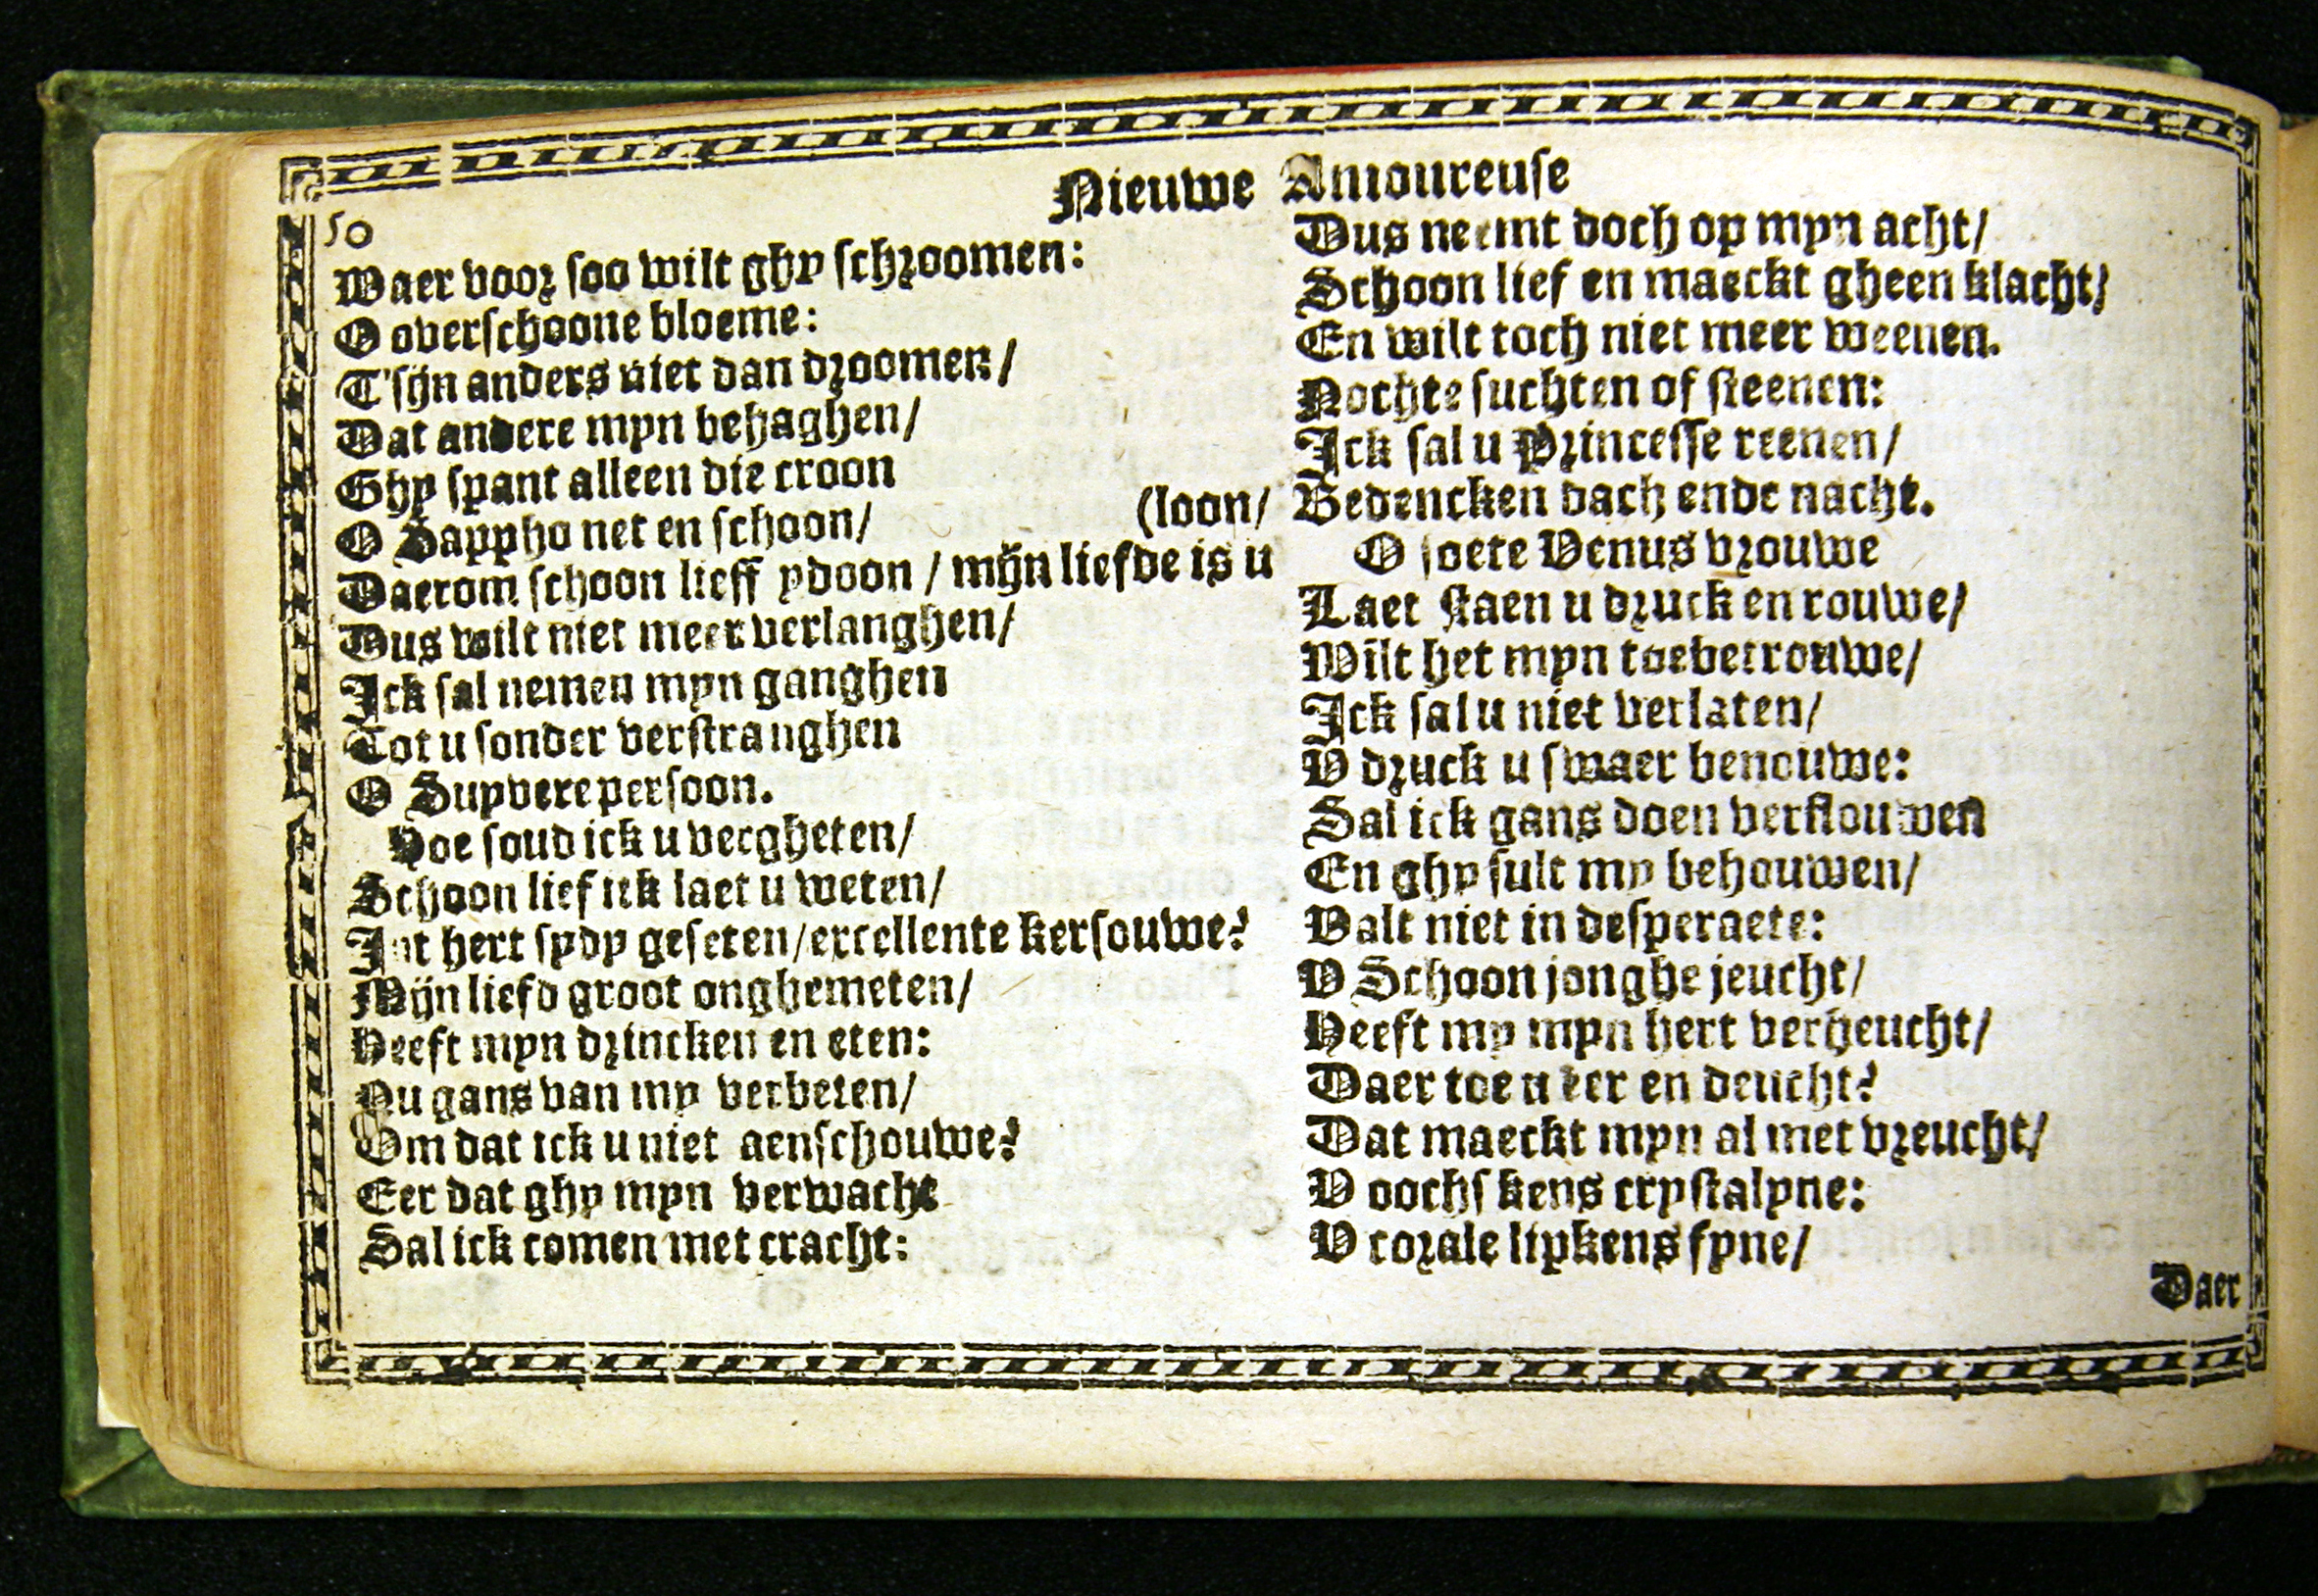 50
Nieuwe Amoureuse
Waer voor soo wilt ghy schroomen:
O overschoone bloeme:
T'sijn anders niet dan droomen/
Dat andere myn behaghen/
Ghy spant alleen die croon
O Sappho net en schoon/
(loon/
Daerom schoon lieff ydoon / mijn liefde is u
Dus wilt niet meer verlanghen/
Ick sal nemen myn ganghen
Tot u sonder verstranghen
O Suyvere persoon.
Hoe soud ick u vergheten/
Schoon lief ick laet u weten/
Int hert sydy geseten/excellente kersouwe?
Mijn liefd groot onghemeten/
Heeft myn drincken en eten:
Nu gans van my verbeten/
Om dat ick u niet aenschouwe?
Eer dat ghy myn verwacht
Sal ick comen met cracht:
Dus neemt doch op myn acht/
Schoon lief en maeckt gheen klacht/
En wilt toch niet meer weenen.
Nochte suchten of steenen:
Ick sal u Princesse reenen/
Bedencken dach ende nacht.
O soete Venus vrouwe
Laet staen u druck en rouwe/
Wilt het myn toebetrouwe/
Ick sal u niet verlaten/
V druck u swaer benouwe:
Sal ick gans doen verflouwen
En ghy sult my behouwen/
Valt niet in desperaete:
V Schoon jonghe jeucht/
Heeft my myn hert verheucht/
Daer toe u eer en deucht?
Dat maeckt myn al met vreucht/
V oochs kens crystalyne:
V corale lipkens fyne/
Daer